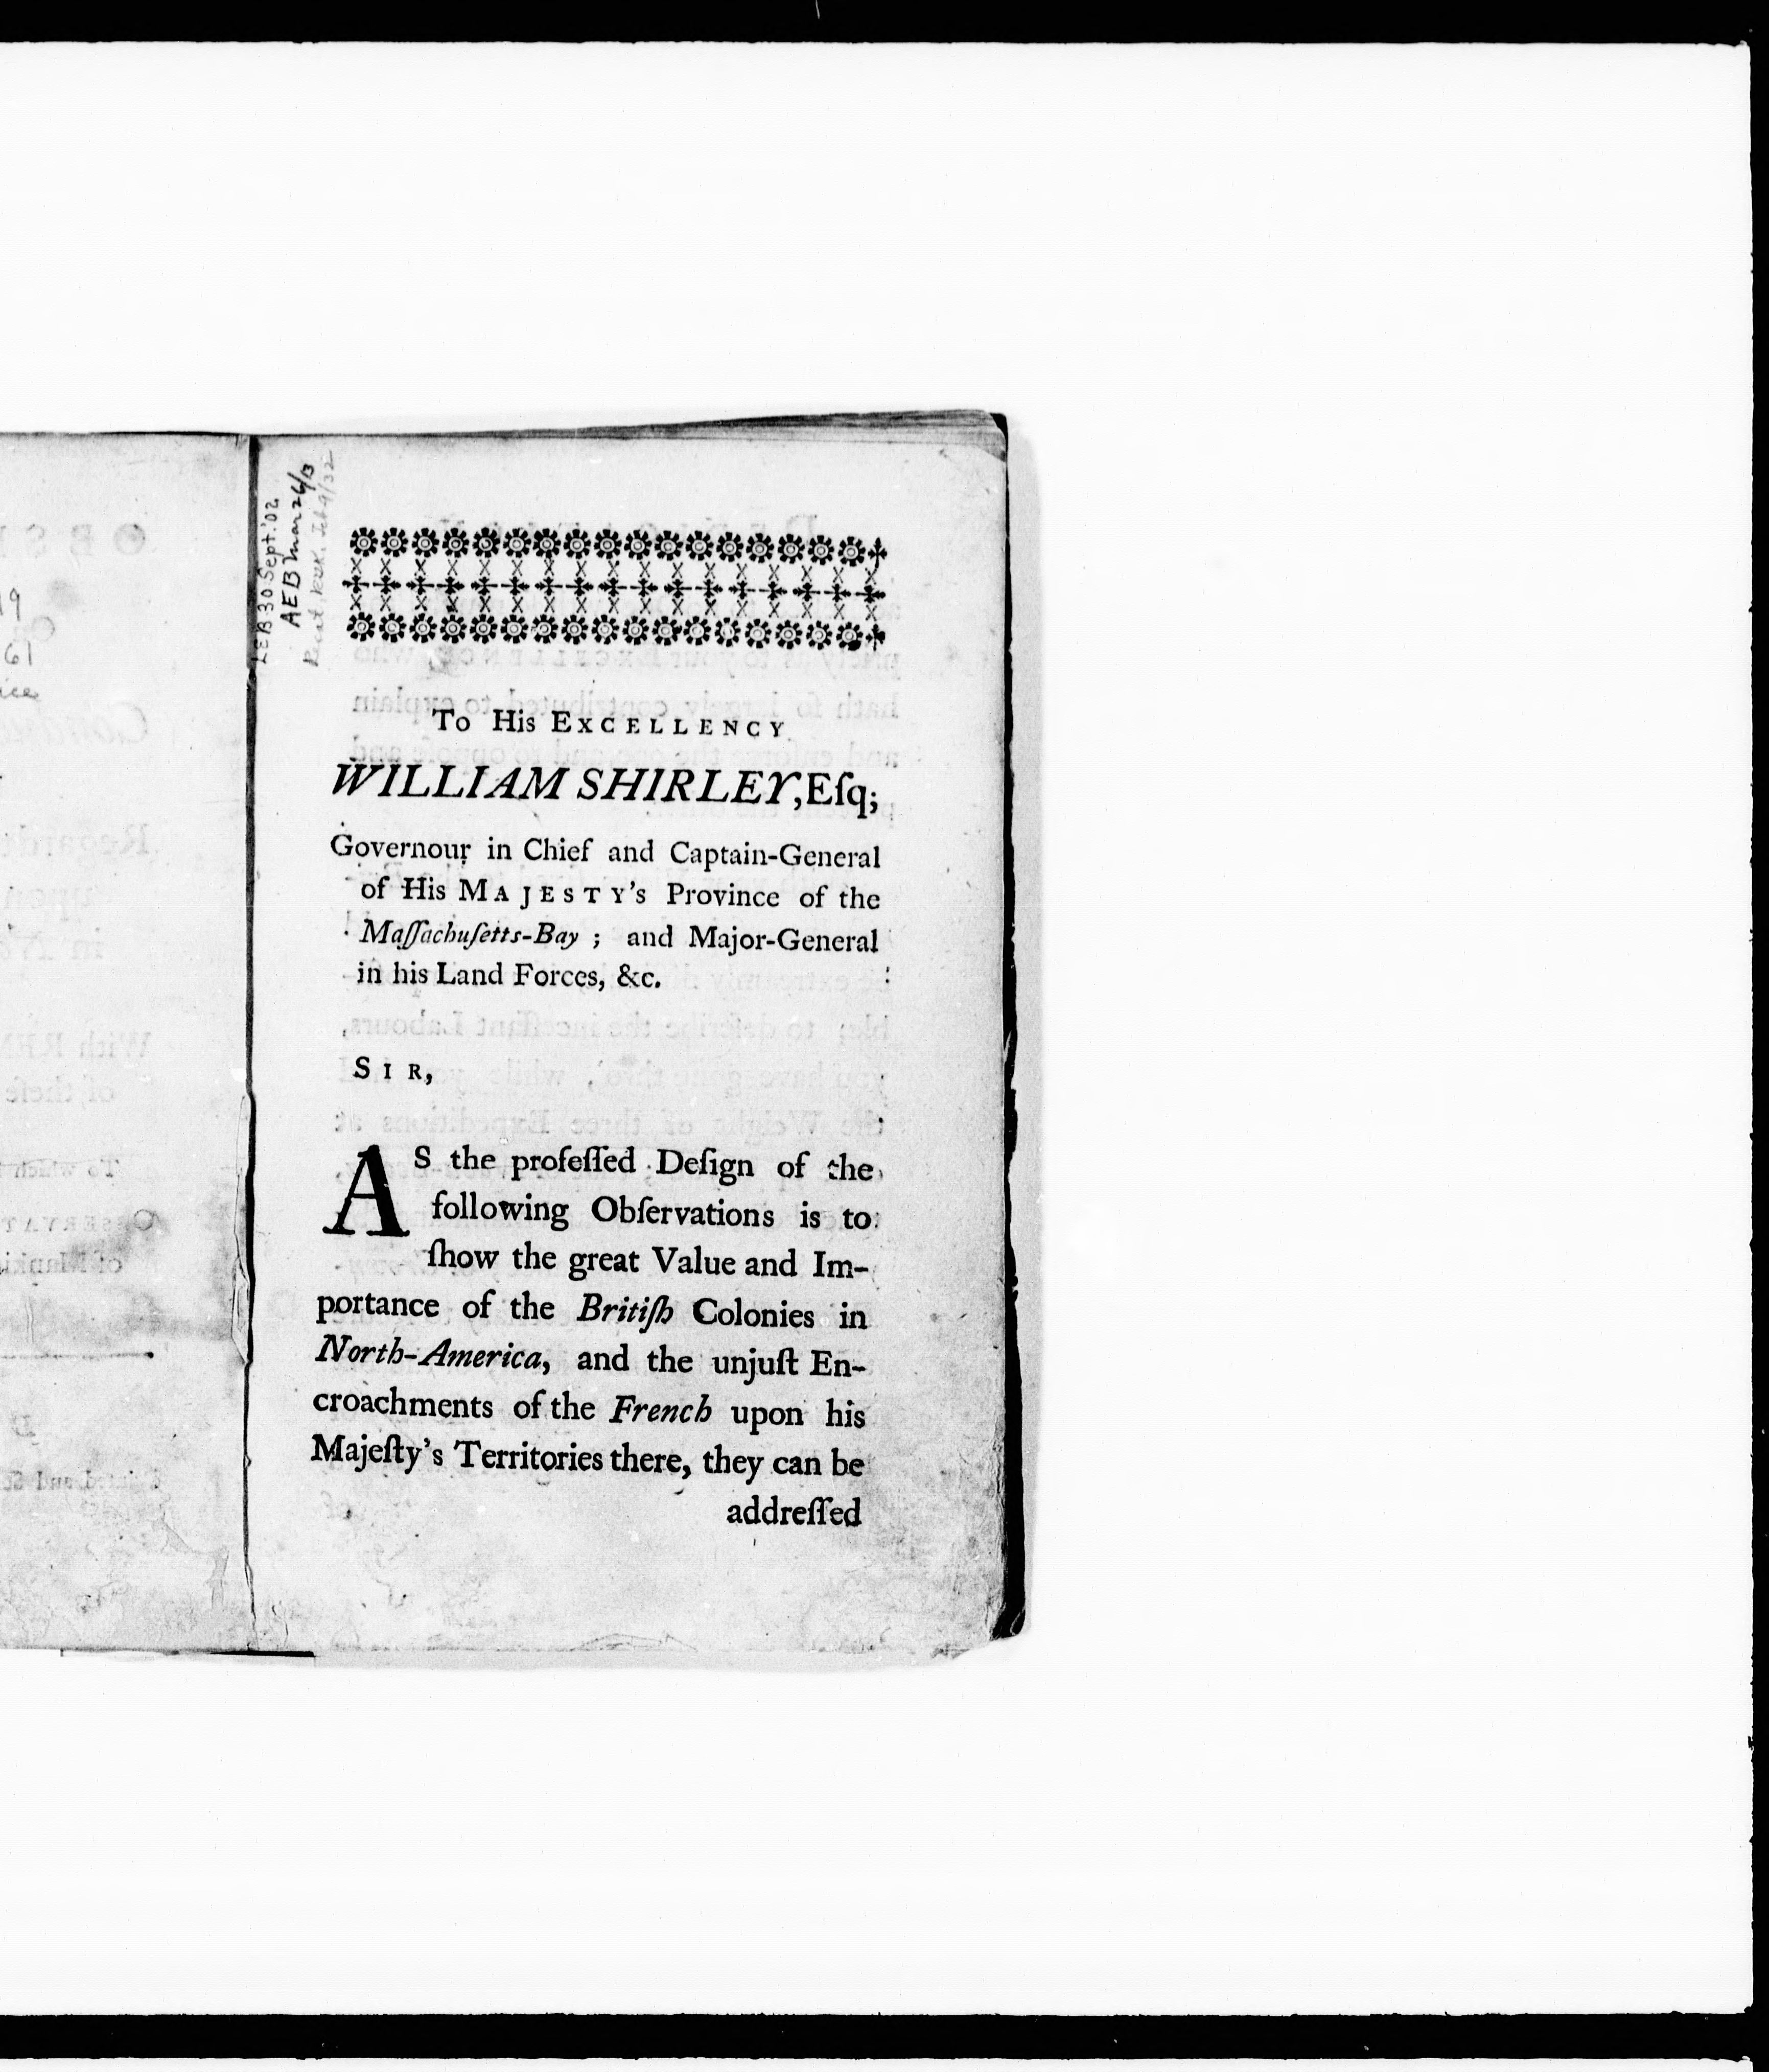 LEB 30 Sept. '02
AEB Mar 26/13
To His EXCELLENCY
WILLIAM SHIRLEY, Eſq;
Governour in Chief and Captain-General
of His MAJESTY's Province of the
Maſſachuſetts-Bay ; and Major-General
in his Land Forces, &c.
SIR,
AS the profeſſed Deſign of the
following Obſervations is to
ſhow the great Value and Im-
portance of the Britiſh Colonies in
North-America, and the unjuſt En-
croachments of the French upon his
Majeſty's Territories there, they can be
addreſſed